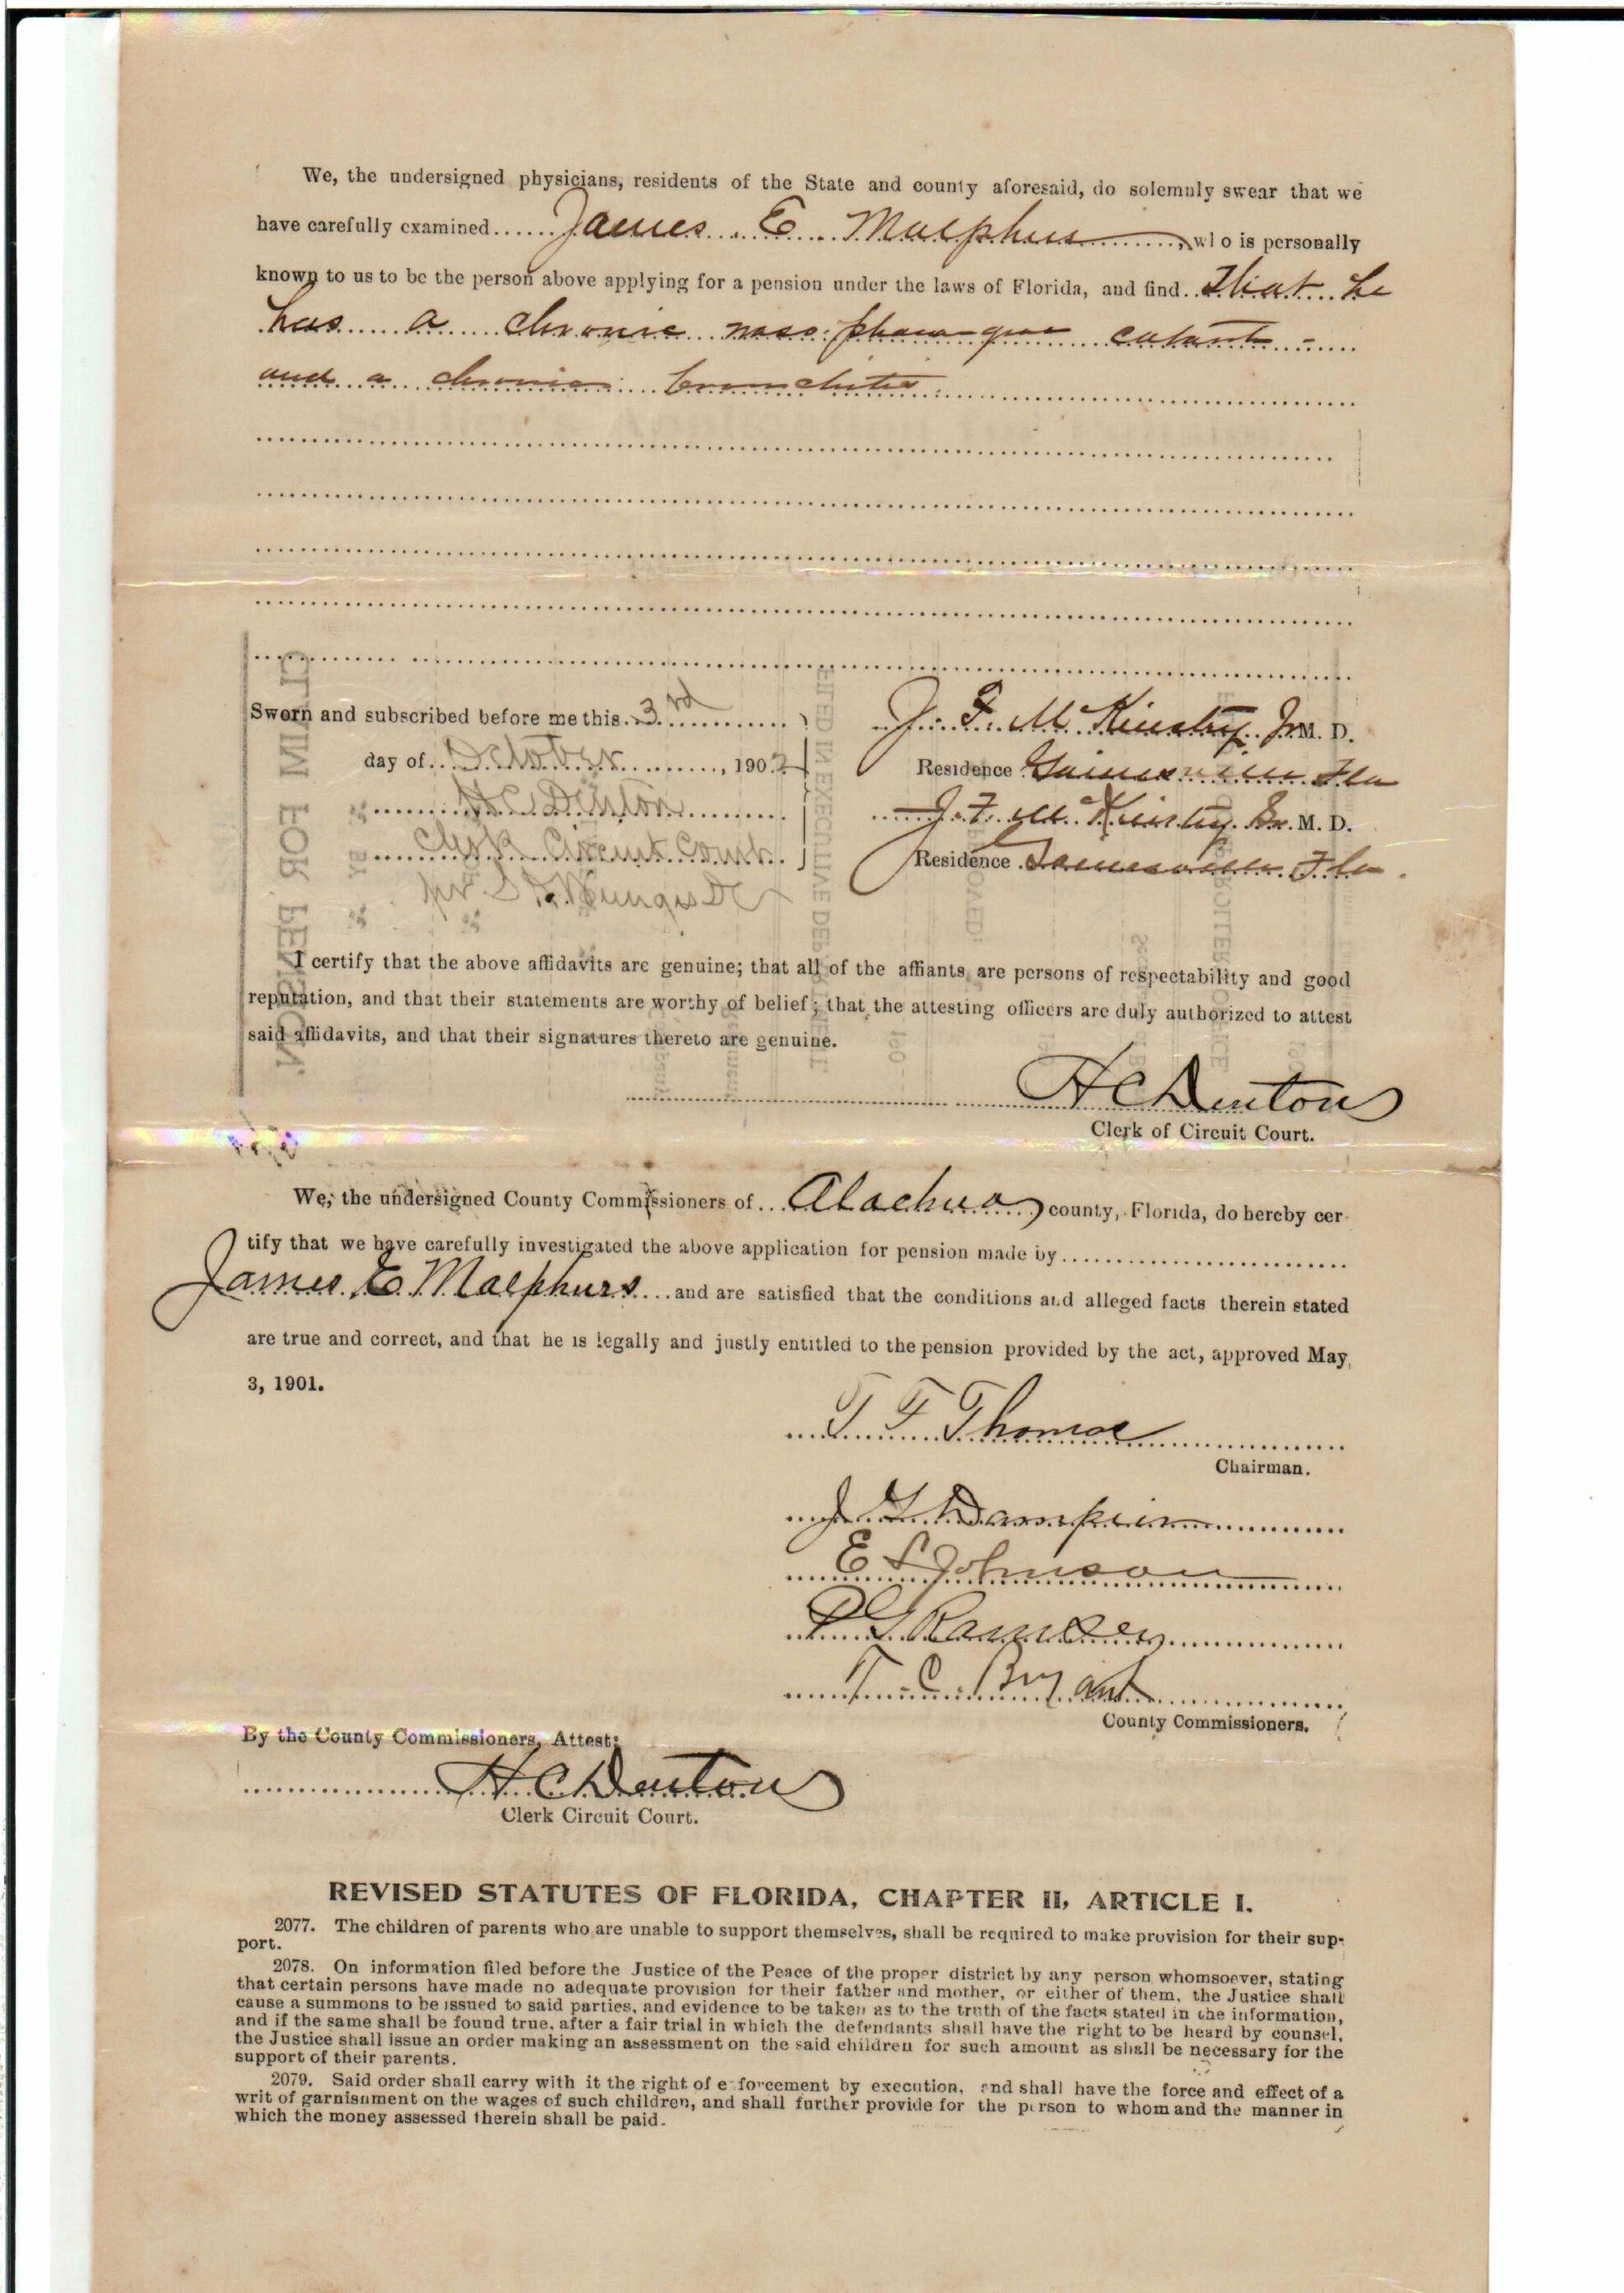 We, the undersigned physicians, residents of the State and county aforesaid, do solemnly swear that we
have carefully examined James E Malphus, who is personally
known to us to be the person above applying for a pension under the laws of Florida, and find that he
has a chronic naso catarrh
and a chronic bronchitis
Sworn and subscribed before me this 3rd
day of October, 1902
H C Denton
Clerk Circuit Court
J. F. McKinstry Jr M. D.
Residence Gainesville Fla
J. F. McKinstry Sr. M. D.
Residence Gainesville Fla.
I certify that the above affidavits are genuine; that all of the affiants are persons of respectability and good
reputation, and that their statements are worthy of belief; that the attesting officers are duly authorized to attest
said affidavits, and that their signatures thereto are genuine.
H C Denton
Clerk of Circuit Court.
We, the undersigned County Commissioners of Alachua county, Florida, do hereby cer-
tify that we have carefully investigated the above application for pension made by
James E. Malphurs and are satisfied that the conditions and alleged facts therein stated
are true and correct, and that he is legally and justly entitled to the pension provided by the act, approved May
3, 1901.
T F Thomas
Chairman.
J G Dampier
E S Johnson
P G Ramsey
T. C. Bryant
County Commissioners.
By the County Commissioners, Attest:
H C Denton
Clerk Circuit Court.
REVISED STATUTES OF FLORIDA, CHAPTER II, ARTICLE I.
2077. The children of parents who are unable to support themselves, shall be required to make provision for their sup-
port.
2078. On information filed before the Justice of the Peace of the proper district by any person whomsoever, stating
that certain persons have made no adequate provision for their father and mother, or either of them, the Justice shall
cause a summons to be issued to said parties, and evidence to be taken as to the truth of the facts stated in the information,
and if the same shall be found true, after a fair trial in which the defendants shall have the right to be heard by counsel,
the Justice shall issue an order making an assessment on the said children for such amount as shall be necessary for the
support of their parents.
2079. Said order shall carry with it the right of enforcement by execution, and shall have the force and effect of a
writ of garnishment on the wages of such children, and shall further provide for the person to whom and the manner in
which the money assessed therein shall be paid.